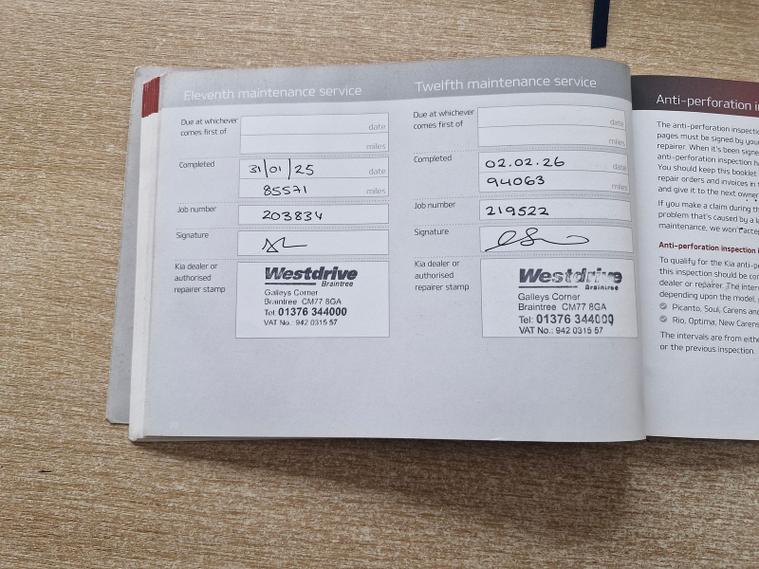 Eleventh maintenance service
Due at whichever
comes first of
date
miles
Completed
31/01/25
date
85571
miles
Job number
203834
Signature
Kia dealer or
authorised
repairer stamp
Westdrive
Braintree
Galleys Corner
Braintree CM77 8GA
Tel: 01376 344000
VAT No.: 942 0315 57
Twelfth maintenance service
Due at whichever
comes first of
date
miles
Completed
02.02.26
date
94063
miles
Job number
219522
Signature
Kia dealer or
authorised
repairer stamp
Westdrive
Braintree
Galleys Corner
Braintree CM77 8GA
Tel: 01376 344000
VAT No.: 942 0315 57
Anti-perforation
The anti-perforation
pages must be signed by
repairer. When it's been
anti-perforation inspection
You should keep this booklet
repair orders and invoices in
and give it to the next owner
If you make a claim during
problem that's caused by a
maintenance, we won't
Anti-perforation inspection
To qualify for the Kia
this inspection should be
dealer or repairer. The
depending upon the model,
Picanto, Soul, Carens
Rio, Optima, New Carens
The intervals are from
or the previous inspection.